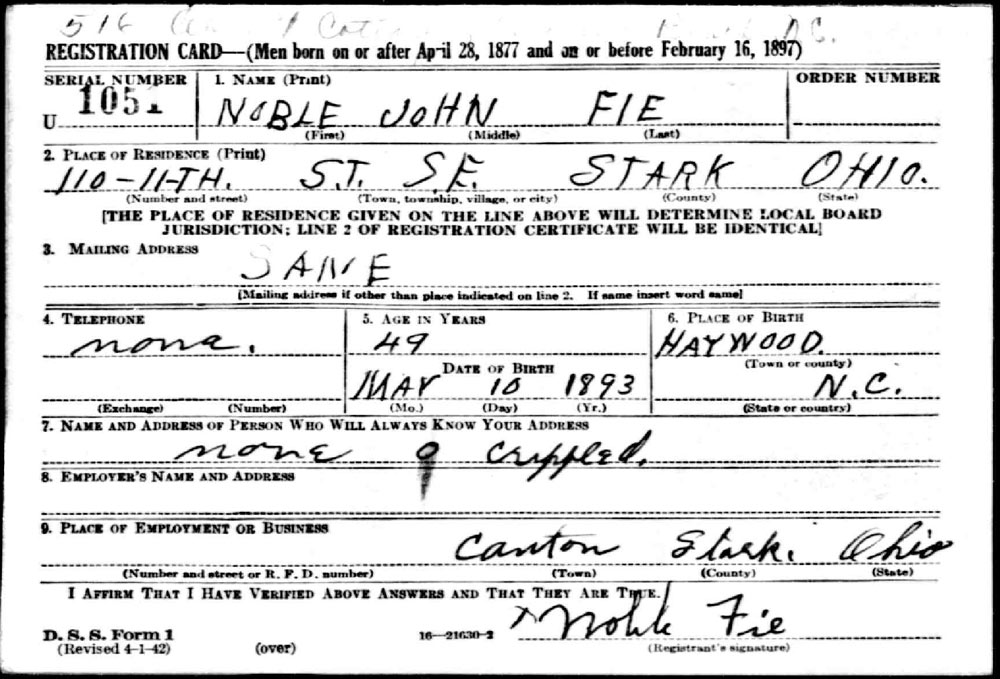 516
REGISTRATION CARD—(Men born on or after April 28, 1877 and on or before February 16, 1897)
SERIAL NUMBER 1. NAME (Print) ORDER NUMBER
U 1051 NOBLE JOHN FIE
(First) (Middle) (Last)
2. PLACE OF RESIDENCE (Print)
110-11-TH. ST. S.E. STARK OHIO.
(Number and street) (Town, township, village, or city) (County) (State)
[THE PLACE OF RESIDENCE GIVEN ON THE LINE ABOVE WILL DETERMINE LOCAL BOARD
JURISDICTION; LINE 2 OF REGISTRATION CERTIFICATE WILL BE IDENTICAL]
3. MAILING ADDRESS
SAME
[Mailing address if other than place indicated on line 2. If same insert word same]
4. TELEPHONE 5. AGE IN YEARS 6. PLACE OF BIRTH
none. 49 HAYWOOD.
DATE OF BIRTH (Town or county)
MAY 10 1893 N.C.
(Exchange) (Number) (Mo.) (Day) (Yr.) (State or country)
7. NAME AND ADDRESS OF PERSON WHO WILL ALWAYS KNOW YOUR ADDRESS
none crippled.
8. EMPLOYER'S NAME AND ADDRESS
9. PLACE OF EMPLOYMENT OR BUSINESS
Canton Stark. Ohio
(Number and street or R. F. D. number) (Town) (County) (State)
I AFFIRM THAT I HAVE VERIFIED ABOVE ANSWERS AND THAT THEY ARE TRUE.
Noble Fie
D. S. S. Form 1 16—21630-2
(Revised 4-1-42) (over) (Registrant's signature)